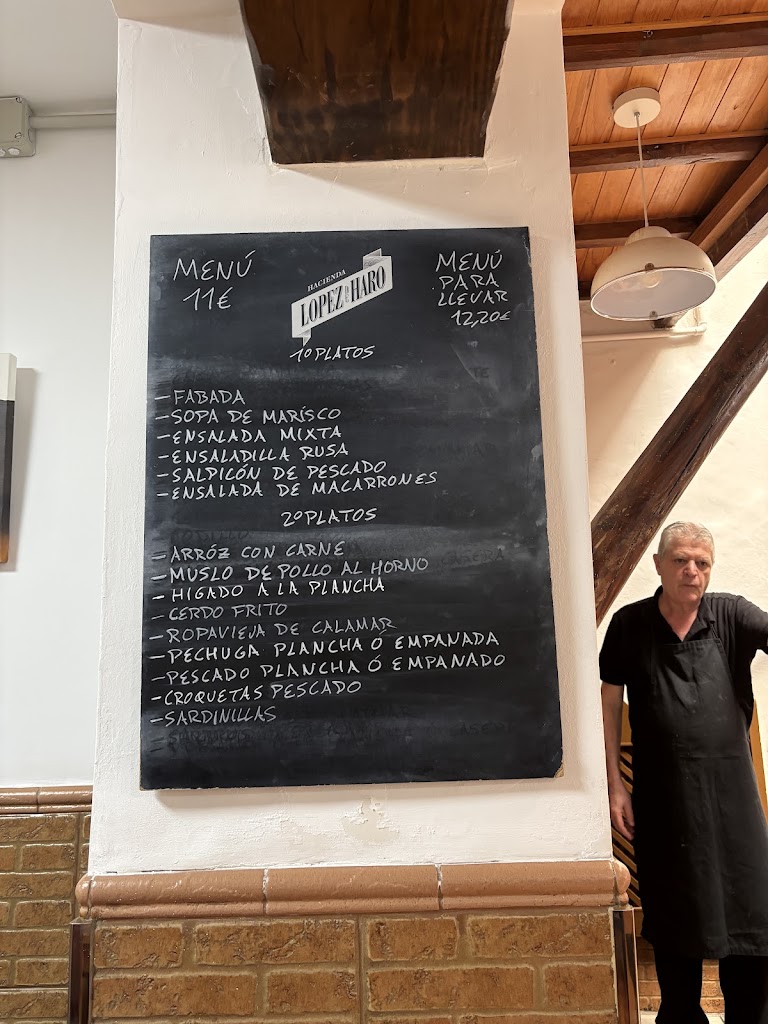 MENÚ
11€
HACIENDA
LOPEZ DE HARO
MENÚ
PARA
LLEVAR
12,20€
1º PLATOS
- FABADA
- SOPA DE MARÍSCO
- ENSALADA MIXTA
- ENSALADILLA RUSA
- SALPICÓN DE PESCADO
- ENSALADA DE MACARRONES
2º PLATOS
- ARRÓZ CON CARNE
- MUSLO DE POLLO AL HORNO
- HIGADO A LA PLANCHA
- CERDO FRITO
- ROPAVIEJA DE CALAMAR
- PECHUGA PLANCHA O EMPANADA
- PESCADO PLANCHA Ó EMPANADO
- CROQUETAS PESCADO
- SARDINILLAS